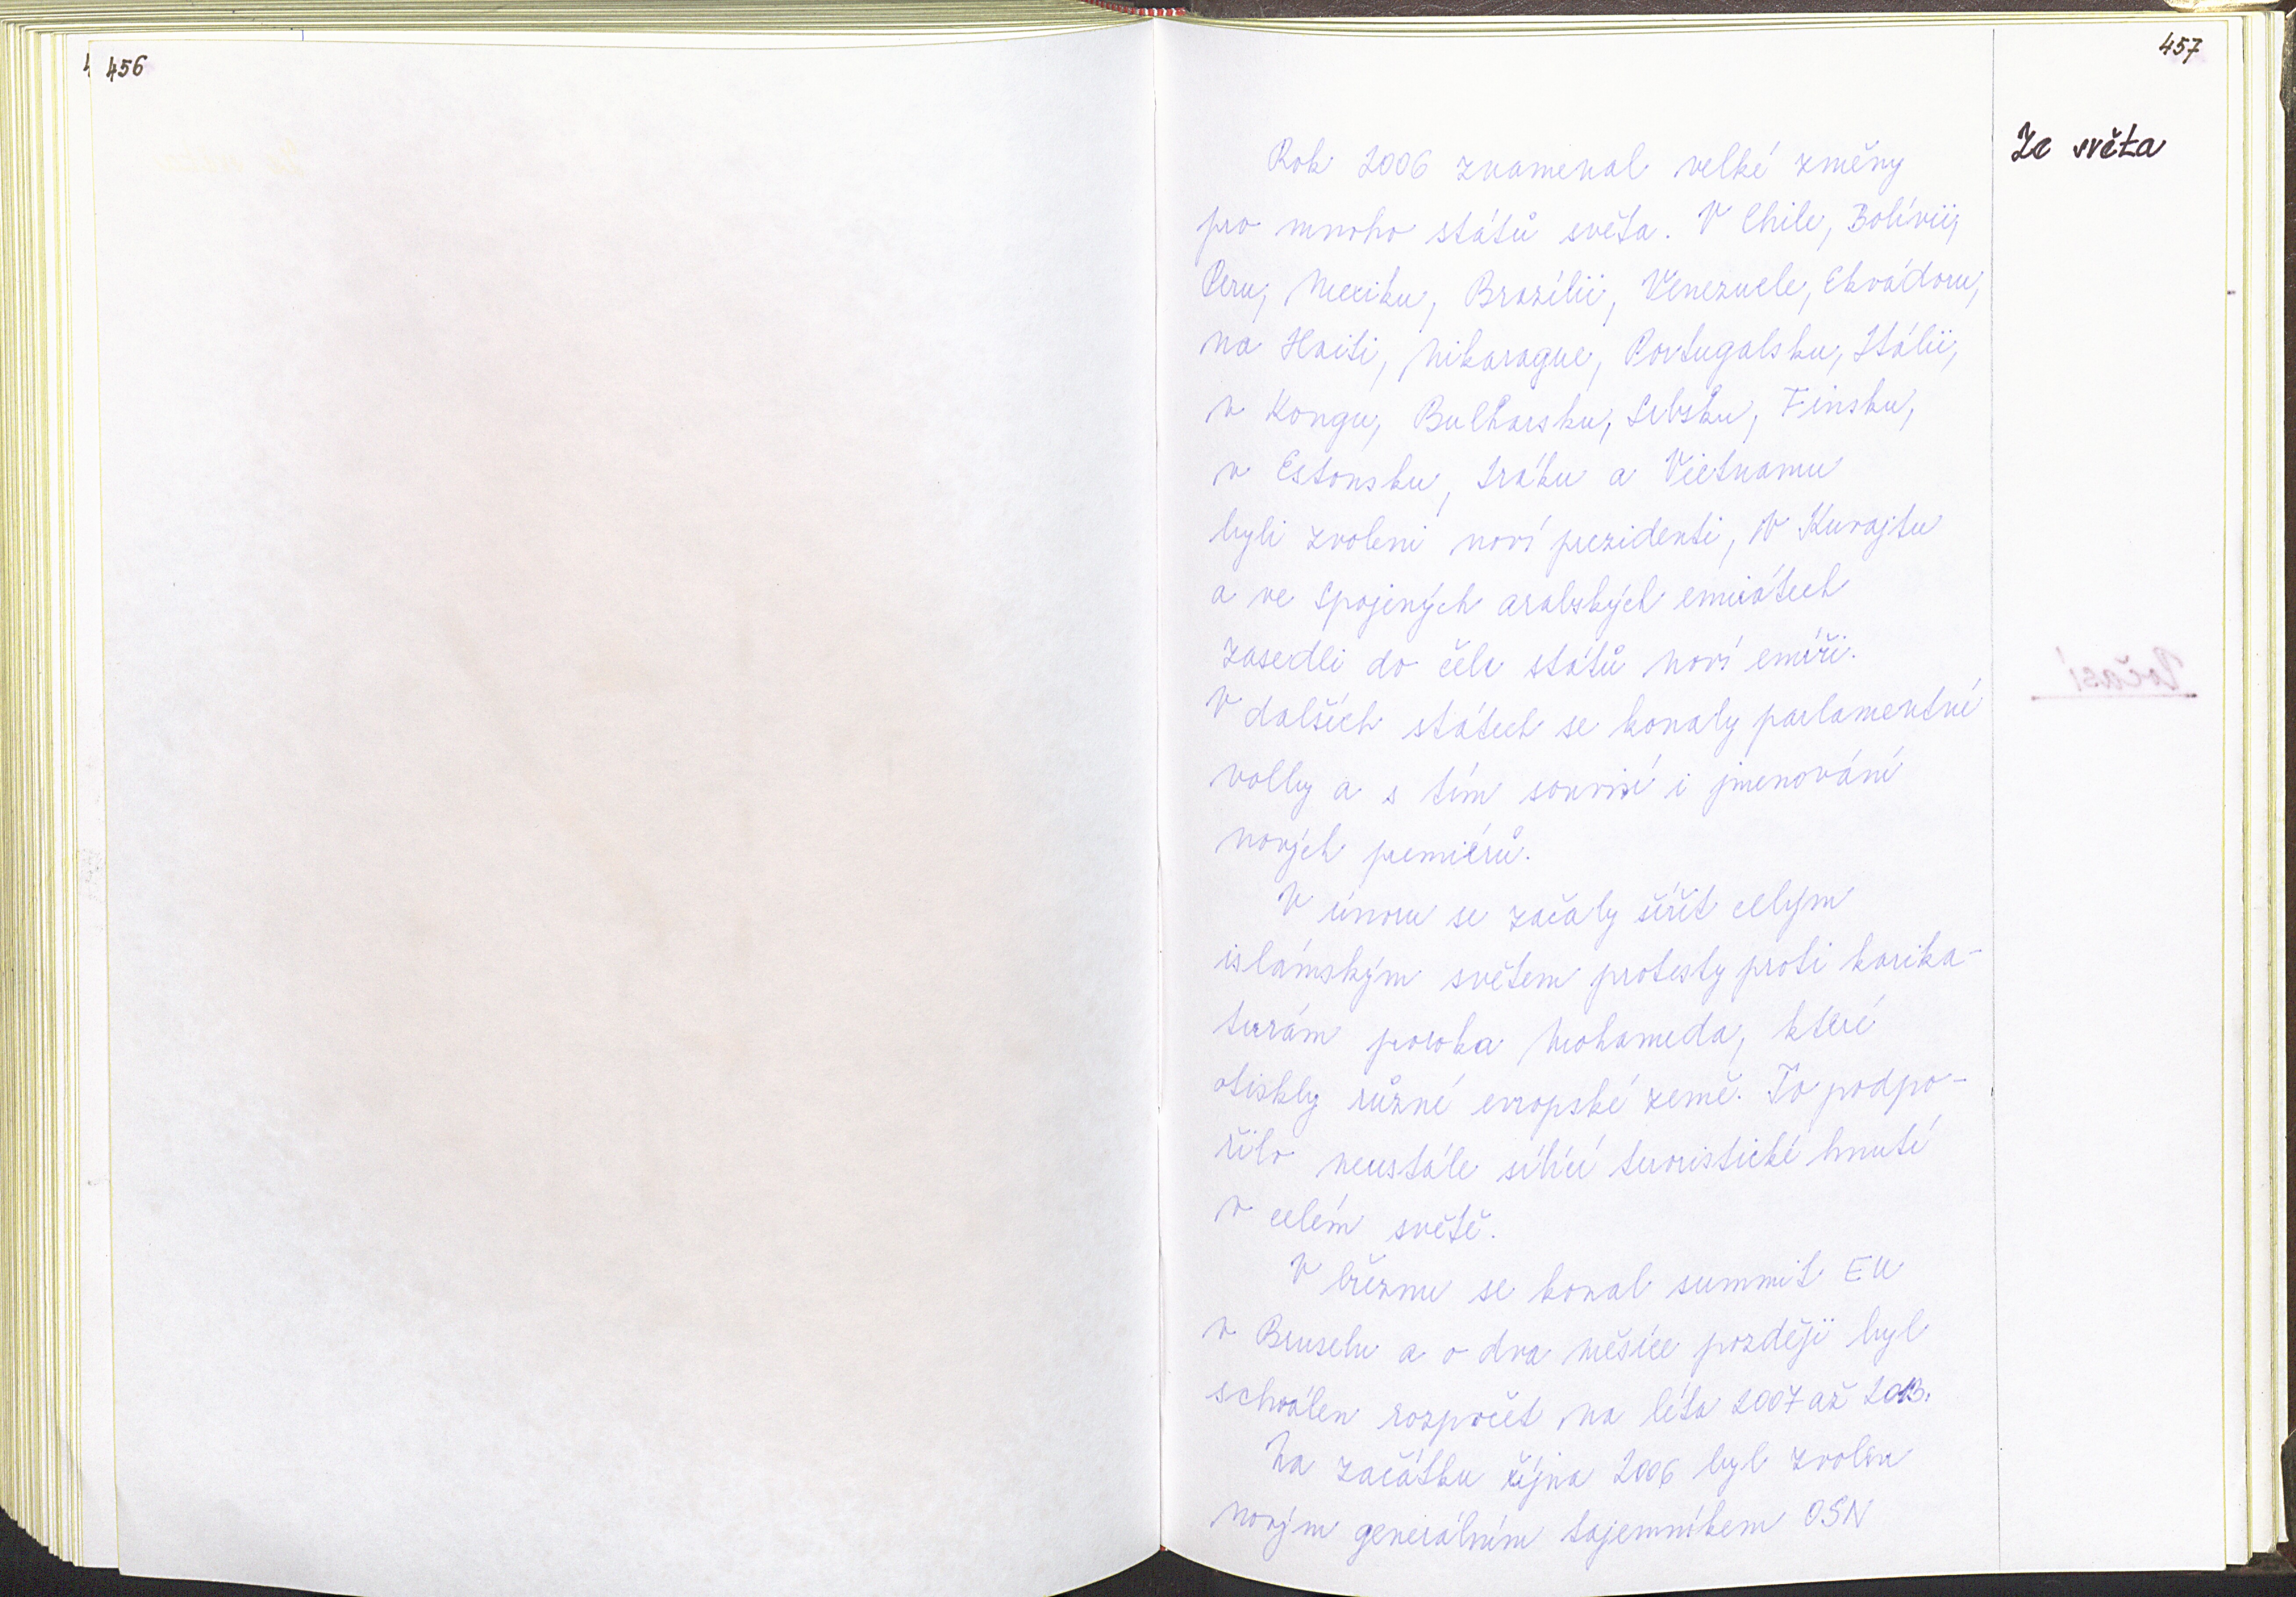 456
457
Ze světa
Rok 2006 znamenal velké změny
pro mnoho států světa. V Chile, Bolívii,
Peru, Mexiku, Brazílii, Venezuele, Ekvádoru,
na Haiti, Nikarague, Portugalsku, Itálii,
v Kongu, Bulharsku, Srbsku, Finsku,
v Estonsku, Iráku a Vietnamu
byli zvoleni noví prezidenti, v Kuvajtu
a ve Spojených arabských emirátech
zasedli do čela států noví emíři.
V dalších státech se konaly parlamentní
volby a s tím souvisí i jmenování
nových premiérů.
V únoru se začaly šířit celým
islámským světem protesty proti karika-
turám proroka Mohameda, které
otiskly různé evropské země. To podpo-
řilo neustále sílící teroristické hnutí
v celém světě.
V březnu se konal summit EU
v Bruselu a o dva měsíce později byl
schválen rozpočet na léta 2007 až 2013.
Na začátku října 2006 byl zvolen
novým generálním tajemníkem OSN